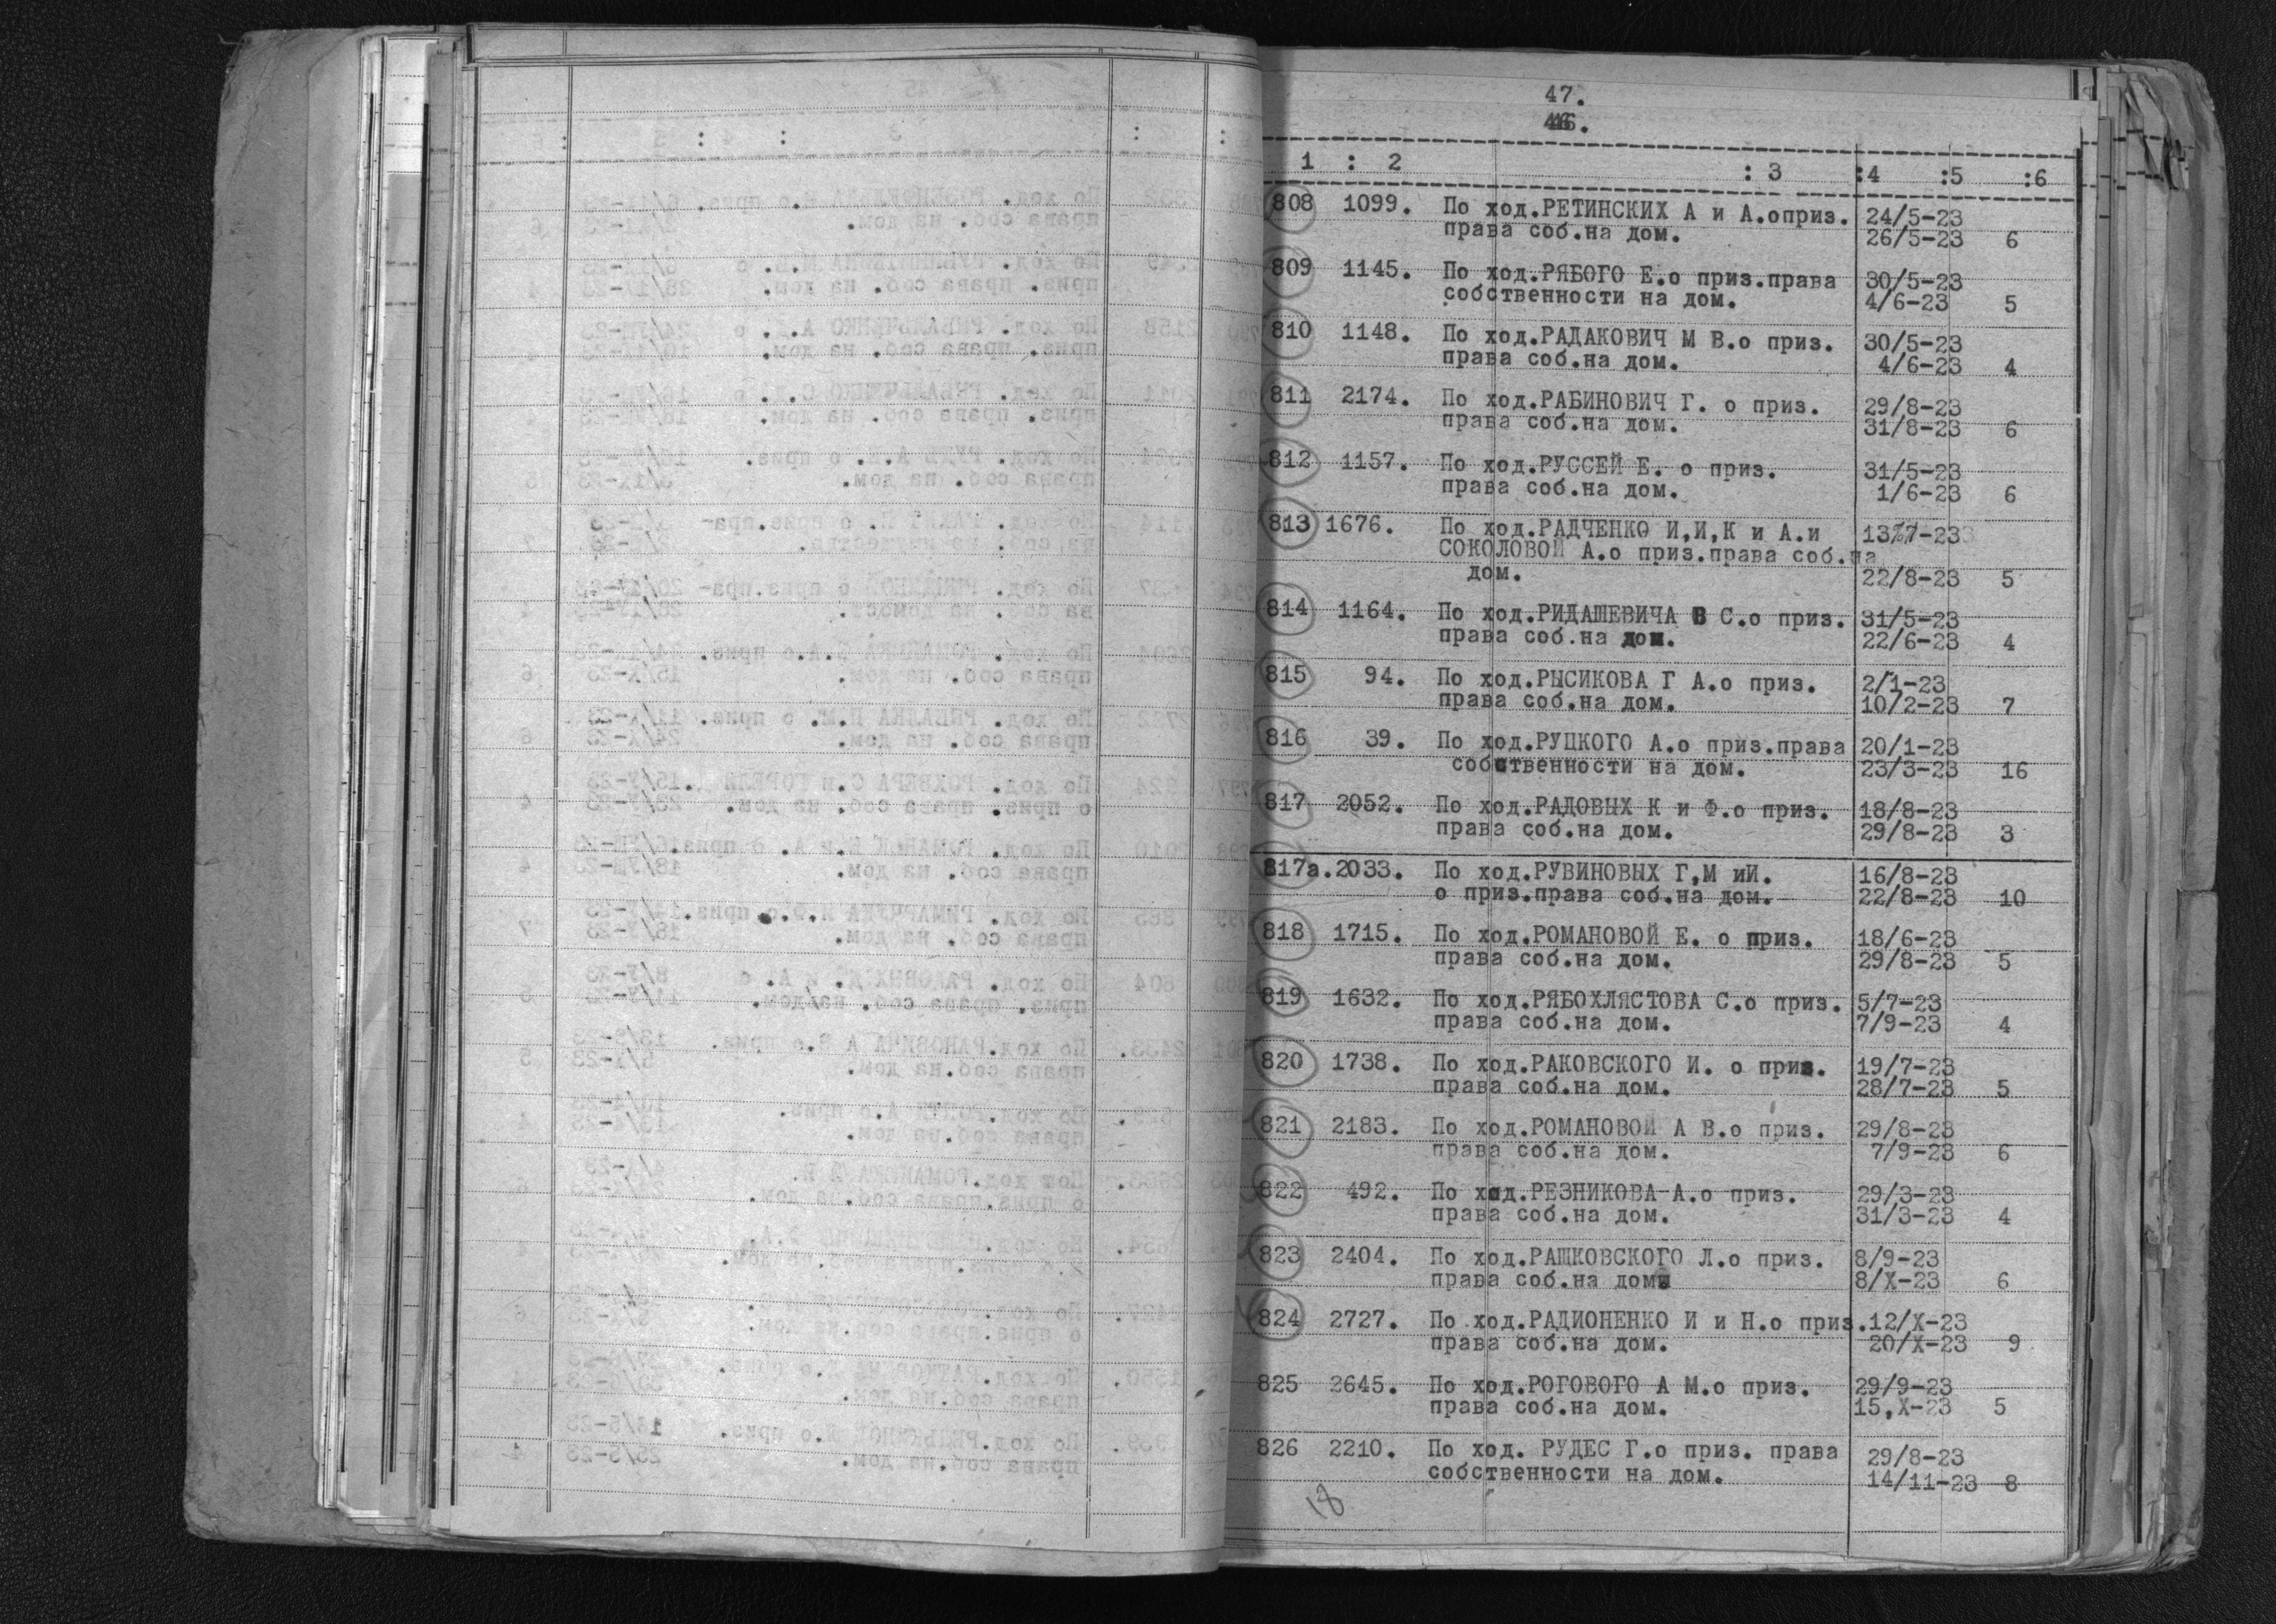 47.
46.
1 : 2 : 3 :4 :5 :6
808 1099. По ход.РЕТИНСКИХ А и А.оприз. 24/5-23
права соб.на дом. 26/5-23 6
809 1145. По ход.РЯБОГО Е.о приз.права 30/5-23
собственности на дом. 4/6-23 5
810 1148. По ход.РАДАКОВИЧ М В.о приз. 30/5-23
права соб.на дом. 4/6-23 4
811 2174. По ход.РАБИНОВИЧ Г. о приз. 29/8-23
права соб.на дом. 31/8-23 6
812 1157. По ход.РУССЕЙ Е. о приз. 31/5-23
права соб.на дом. 1/6-23 6
813 1676. По ход.РАДЧЕНКО И,И,К и А.и 13/7-23
СОКОЛОВОЙ А.о приз.права соб.на
дом. 22/8-23 5
814 1164. По ход.РИДАШЕВИЧА В С.о приз. 31/5-23
права соб.на дом. 22/6-23 4
815 94. По ход.РЫСИКОВА Г А.о приз. 2/1-23
права соб.на дом. 10/2-23 7
816 39. По ход.РУЦКОГО А.о приз.права 20/1-23
собственности на дом. 23/3-23 16
817 2052. По ход.РАДОВЫХ К и Ф.о приз. 18/8-23
права соб.на дом. 29/8-23 3
817а.2033. По ход.РУВИНОВЫХ Г,М иИ. 16/8-23
о приз.права соб.на дом. 22/8-23 10
818 1715. По ход.РОМАНОВОЙ Е. о приз. 18/6-23
права соб.на дом. 29/8-23 5
819 1632. По ход.РЯБОХЛЯСТОВА С.о приз. 5/7-23
права соб.на дом. 7/9-23 4
820 1738. По ход.РАКОВСКОГО И. о приз. 19/7-23
права соб.на дом. 28/7-23 5
821 2183. По ход.РОМАНОВОЙ А В.о приз. 29/8-23
права соб.на дом. 7/9-23 6
822 492. По ход.РЕЗНИКОВА А.о приз. 29/3-23
права соб.на дом. 31/3-23 4
823 2404. По ход.РАШКОВСКОГО Л.о приз. 8/9-23
права соб.на дом 8/Х-23 6
824 2727. По ход.РАДИОНЕНКО И и Н.о приз.12/Х-23
права соб.на дом. 20/Х-23 9
825 2645. По ход.РОГОВОГО А М.о приз. 29/9-23
права соб.на дом. 15,Х-23 5
826 2210. По ход. РУДЕС Г.о приз. права 29/8-23
собственности на дом. 14/11-23 8
18